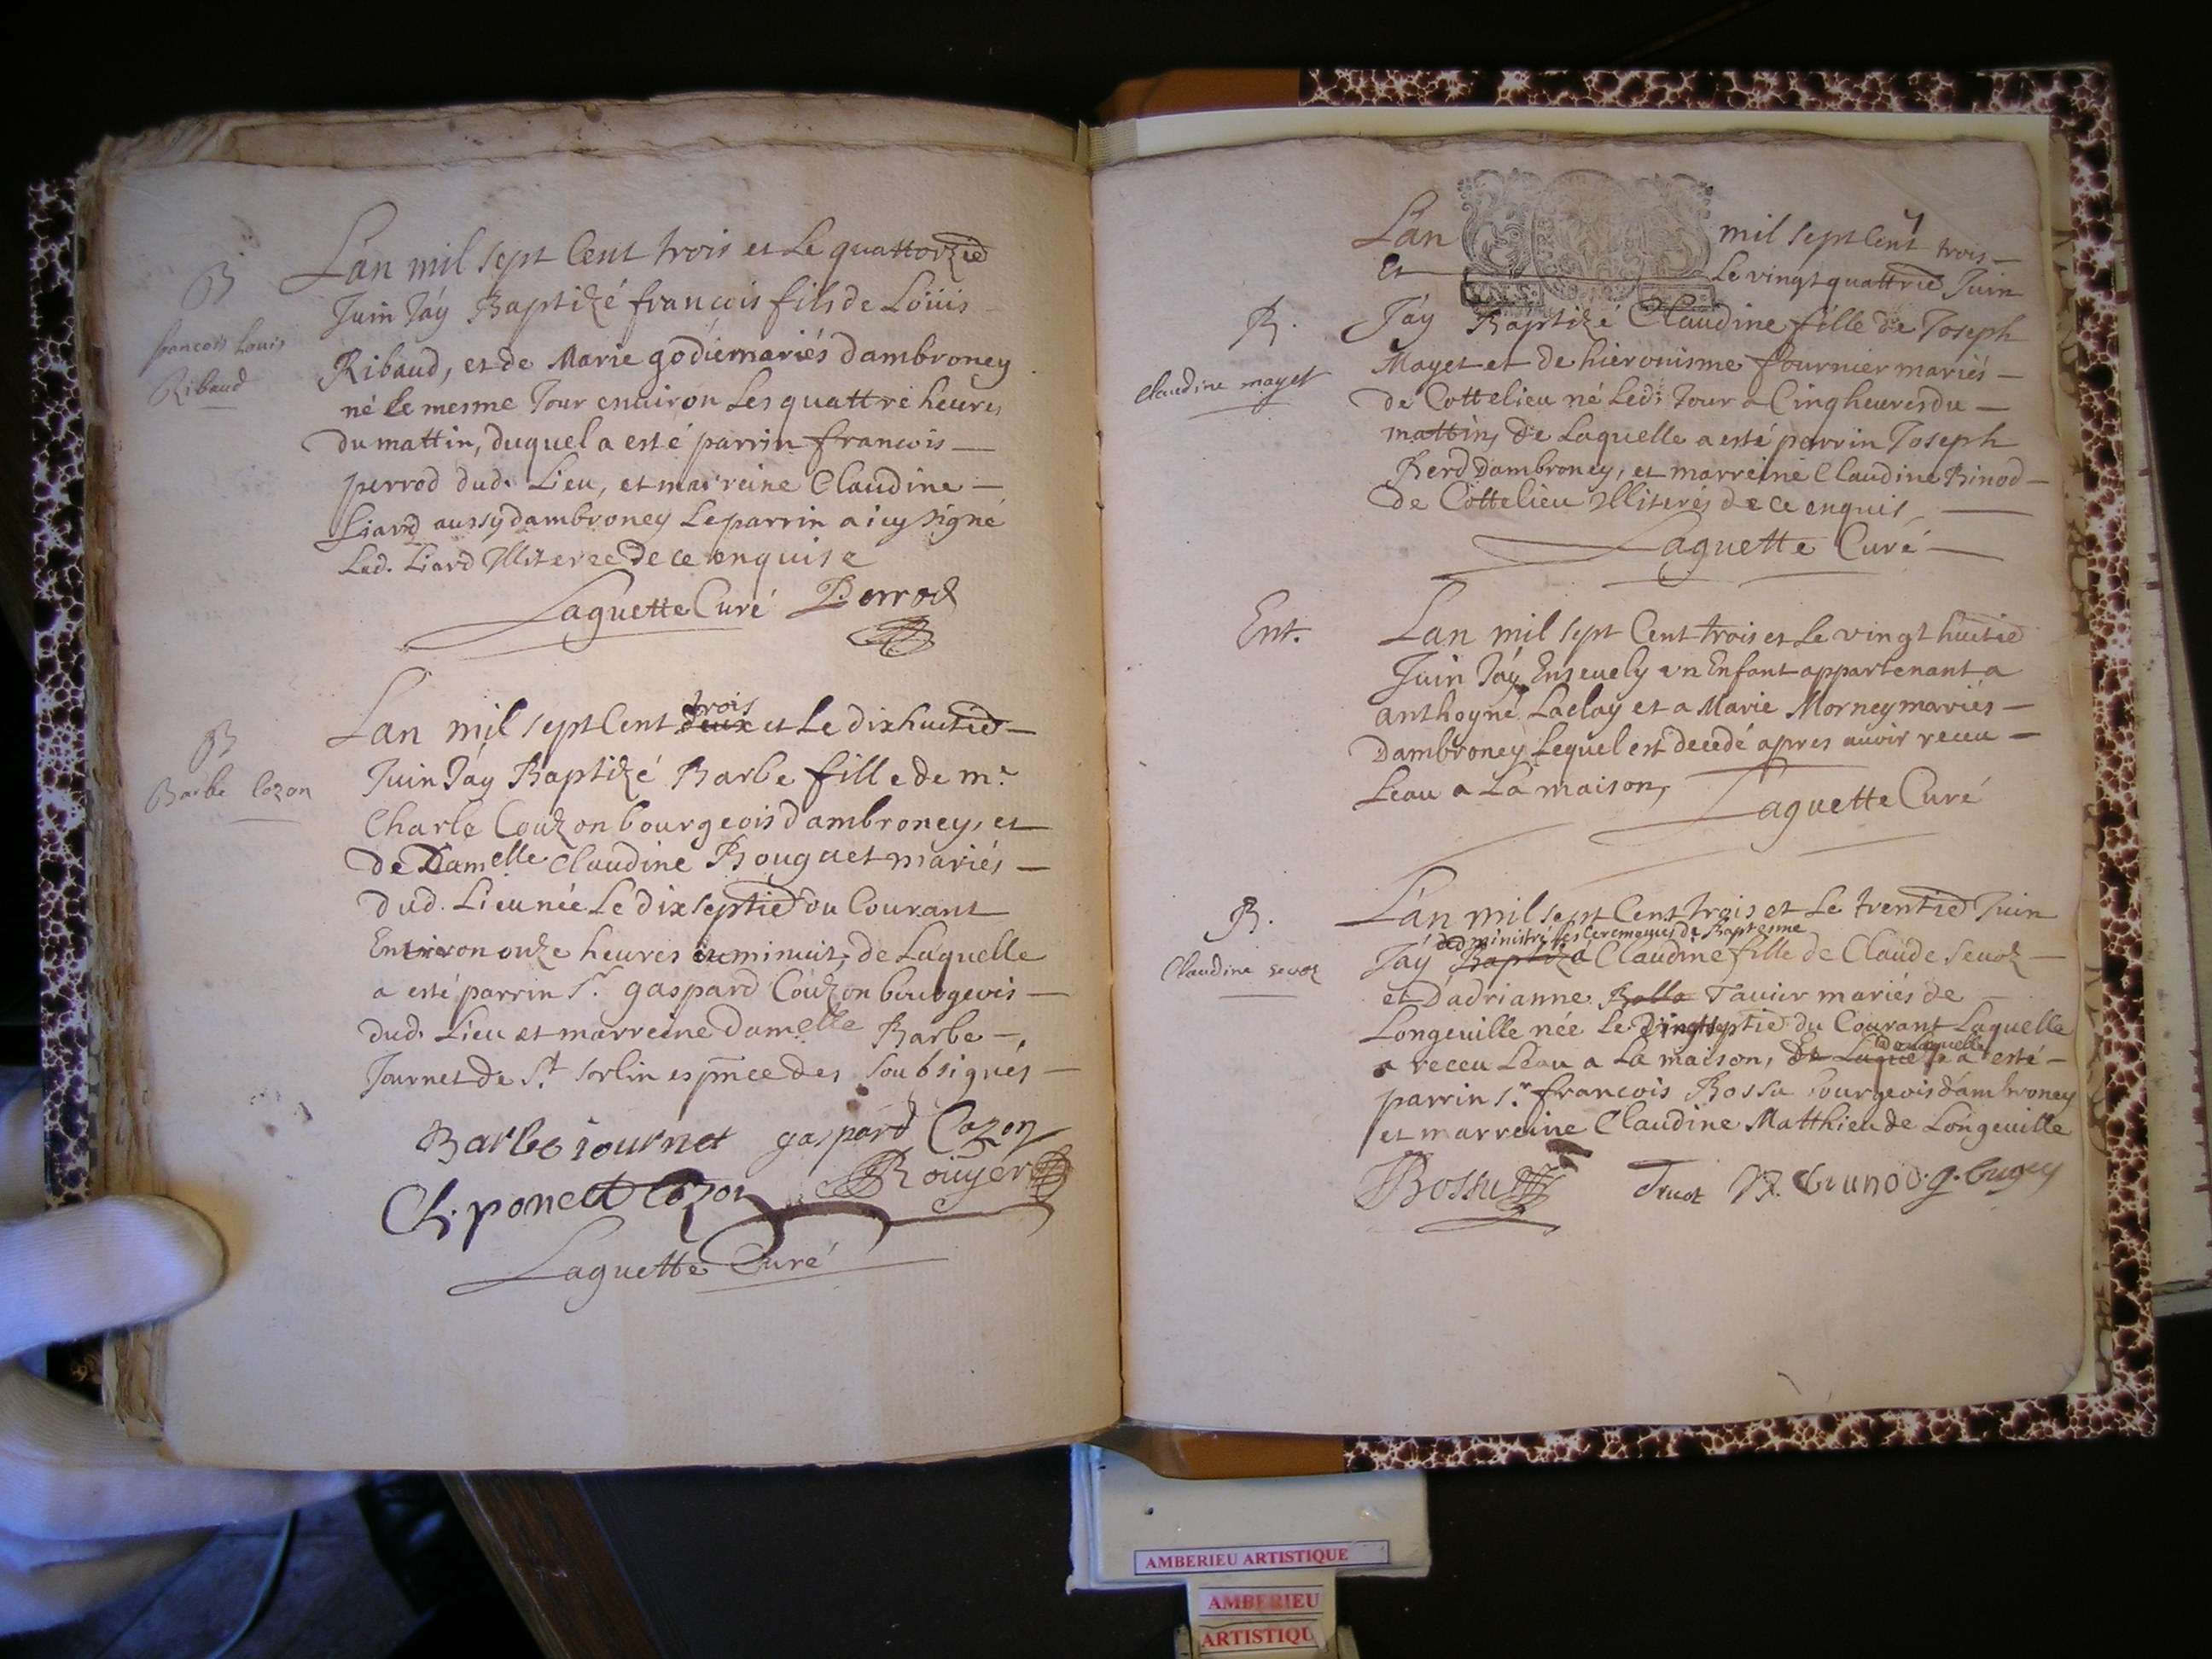 B
francois Louis
Ribaud
Lan mil sept Cent trois et Le quattorzie
Juin Jáy Baptizé francois fils de Loüis
Ribaud, et de Marie godiemariés dambroney
né le mesme Jour enuiron Les quattre heures
du mattin, duquel a esté parrin francois —
perrod dud. Lieu, et marreine Claudine —
Liard aussy dambroney Le parrin a icy signé
Lad. Liard Illiteree de ce enquise
Laguette Curé Perrod
B
Barbe Cozon
Lan mil sept Cent deux trois et Le dixhuitie —
Juin Jáy Baptizé Barbe fille de mr
Charle Couzon bourgeois dambroney, et
de Damelle Claudine Bouguet mariés —
dud. Lieu née Le dixseptie du Courant
Enuiron onze heures minuit, de Laquelle
a esté parrin Sr. gaspard Couzon bourgeois —
dud. Lieu et marreine damelle Barbe —
Journet de St. sorlin espnce des soubsignés —
Barbe iournet gaspard Cozon
Ch. ponet Cozon Rouyer
Laguette Curé
Lan mil sept Cent trois —
Et Le vingt quattrie Juin
B.
Claudine mayet
Jáy Baptizé Claudine fille de Joseph
Mayet et de hieronisme fournier mariés —
de Cottelieu né Led. Jour a Cinq heures du —
mattin, de Laquelle a esté parrin Joseph
Berd Dambroney, et marreine Claudine Binod —
de Cottelieu Illiterés de ce enquis —
Laguette Curé —
Ent.
Lan mil sept Cent trois et Le vingt huitie
Juin Jáy Enseuely vn Enfant appartenant a
anthoyne Laclay et a Marie Morney mariés —
Dambroney Lequel est decedé apres auoir receu —
Leau a La maison,
Laguette Curé
B.
Claudine seuoz
Lan mil sept Cent trois et Le trentie Juin
administré les Ceremonies de Baptesme
Jáy Baptizé Claudine fille de Claude Seuoz —
et Dadrianne Tauier mariés de
Longeuille née Le vingtseptie du Courant Laquelle
de laquelle
a receu Leau a La maison, De Laquelle a esté —
parrin Sr. francois Bossu bourgeois dambroney
et marreine Claudine Matthieu de Longeuille
Bossu
AMBERIEU ARTISTIQUE
AMBERIEU
ARTISTIQU